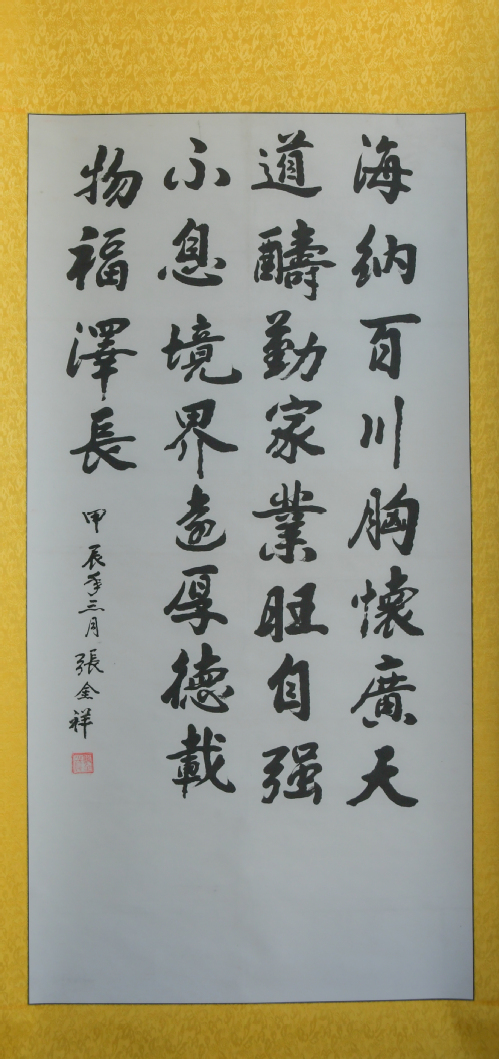 海納百川胸懷廣天
道疇勤家業旺自强
不息境界遠厚德載
物福澤長
甲辰年三月張金祥